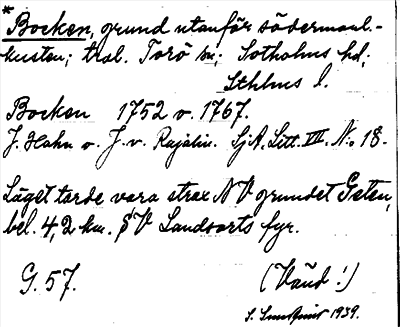 * Bocken, grund utanför södermanl.-
kusten; tral. Torö sn; Sotholms hd;
Sthlms l.
Bocken 1752 o. 1767.
J. Hahn o. J. v. Rajalin. SjA. Litt. VII. No 18.
Läget torde vara strax NV grundet Geten,
bel. 4,2 km. SV Landsorts fyr.
G. 57. (Vänd!)
S. 1939.